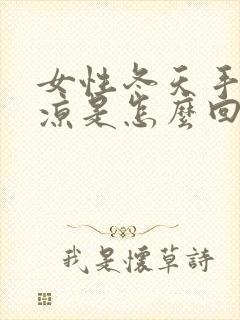 女性冬天手
凉是怎麼回
我是懷草詩